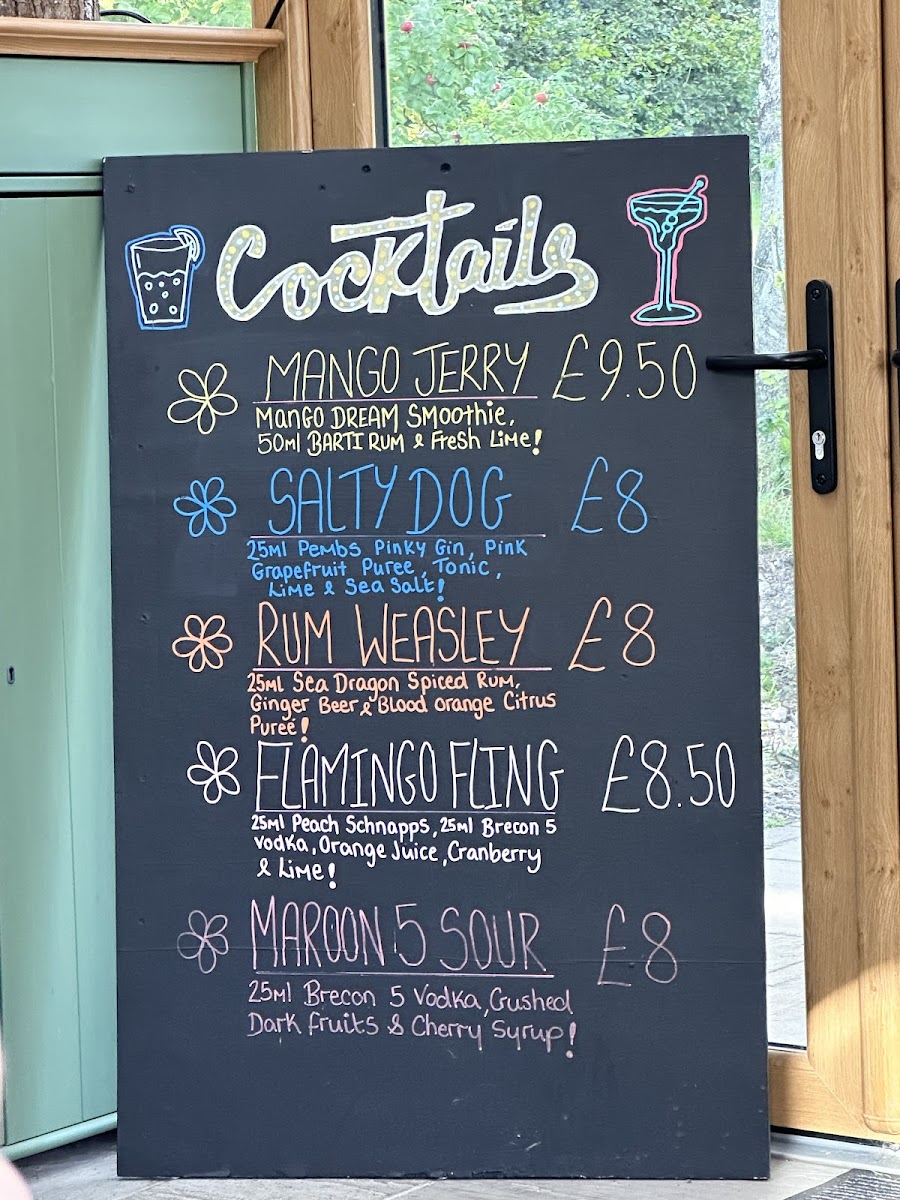 Cocktails
MANGO JERRY £9.50
Mango DREAM Smoothie,
50ml BARTI RUM & Fresh Lime!
SALTY DOG £8
25ml Pembs Pinky Gin, Pink
Grapefruit Puree, Tonic,
Lime & Sea Salt!
RUM WEASLEY £8
25ml Sea Dragon Spiced Rum,
Ginger Beer & Blood orange Citrus
Pureé!
FLAMINGO FLING £8.50
25ml Peach Schnapps, 25ml Brecon 5
vodka, Orange Juice, Cranberry
& Lime!
MAROON 5 SOUR £8
25ml Brecon 5 Vodka, Crushed
Dark fruits & Cherry Syrup!